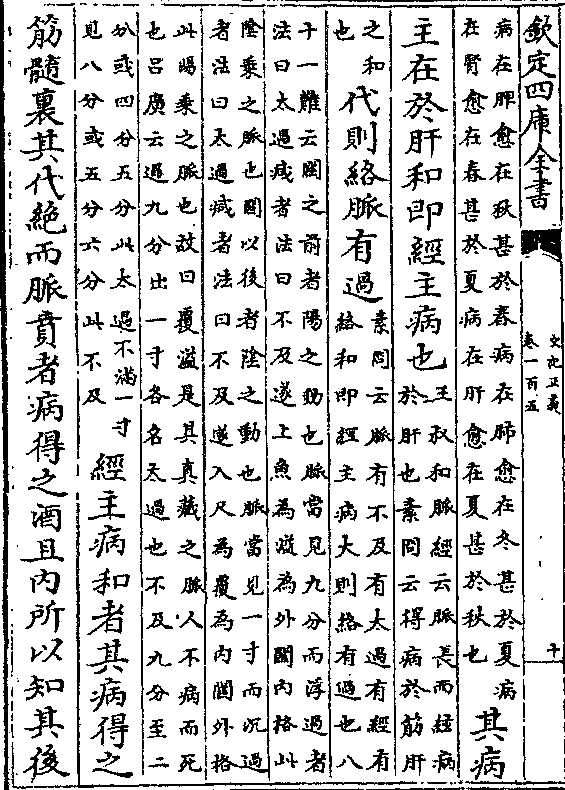 欽定四庫全書
史記正義
卷一百五
十
病在脾愈在秋甚於春病在肺愈在冬甚於夏病
在腎愈在春甚於夏病在肝愈在夏甚於秋也
其病
主在於肝和即經主病也
王叔和脈經云脈長而絃病
於肝也素問云得病於筋肝
之和
也
代則絡脈有過
素問云脈有不及有太過有經有
絡和即經主病大則絡有過也八
十一難云關之前者陽之動也脈當見九分而浮過者
法曰太過減者法曰不及遂上魚為溢為外關內格此
陰乘之脈也關以後者陰之動也脈當見一寸而沉過
者法曰太過減者法曰不及遂入尺為覆為內關外格
此陽乘之脈也故曰覆溢是其真藏之脈人不病而死
也呂廣云過九分出一寸各名太過也不及九分至二
分或四分五分此太過不滿一寸
見八分或五分六分此不及
經主病和者其病得之
筋髓裏其代絕而脈賁者病得之酒且內所以知其後